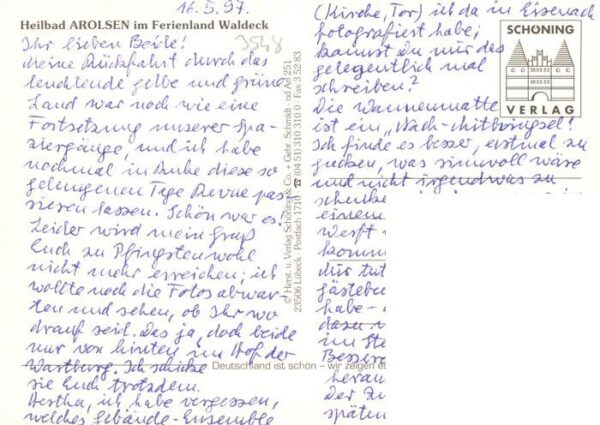 16.5.97.
Heilbad AROLSEN im Ferienland Waldeck
3548
Ihr lieben Beide!
Meine Rückfahrt durch das
leuchtende gelbe und grüne
Land war noch wie eine
Fortsetzung unserer Spa-
ziergänge, und ich habe
nochmal in Ruhe diese so
gelungenen Tage Revue pas-
sieren lassen. Schön war es!
Leider wird mein Gruß
Euch zu Pfingsten wohl
nicht mehr erreichen; ich
wollte noch die Fotos abwar-
ten und sehen, ob Ihr wo
drauf seid. Das ja, doch beide
nur von hinten im Hof der
Wartburg. Ich schicke
sie Euch trotzdem.
Hertha, ich habe vergessen,
welches Gebäude-Ensemble
© Herst. u. Verlag Schöning & Co. + Gebr. Schmidt
23506 Lübeck · Postfach 1710 ☎ (04 51) 310 31 0 · Fax 3 52 83
nd Ad 251
Deutschland ist schön – wir zeigen es
(Kirche, Tor) ich da in Eisenach
fotografiert habe;
kannst Du mir das
gelegentlich mal
schreiben?
Die Wannenmatte
ist ein „Nach-mitbringsel!
Ich finde es besser, erstmal zu
gucken, was sinnvoll wäre
und nicht irgendwas zu
schenke
einem
werft
komm
für
gästebe
habe -
dazu
im St
Bessere
heran
Der Z
späten
SCHÖNING
VERLAG